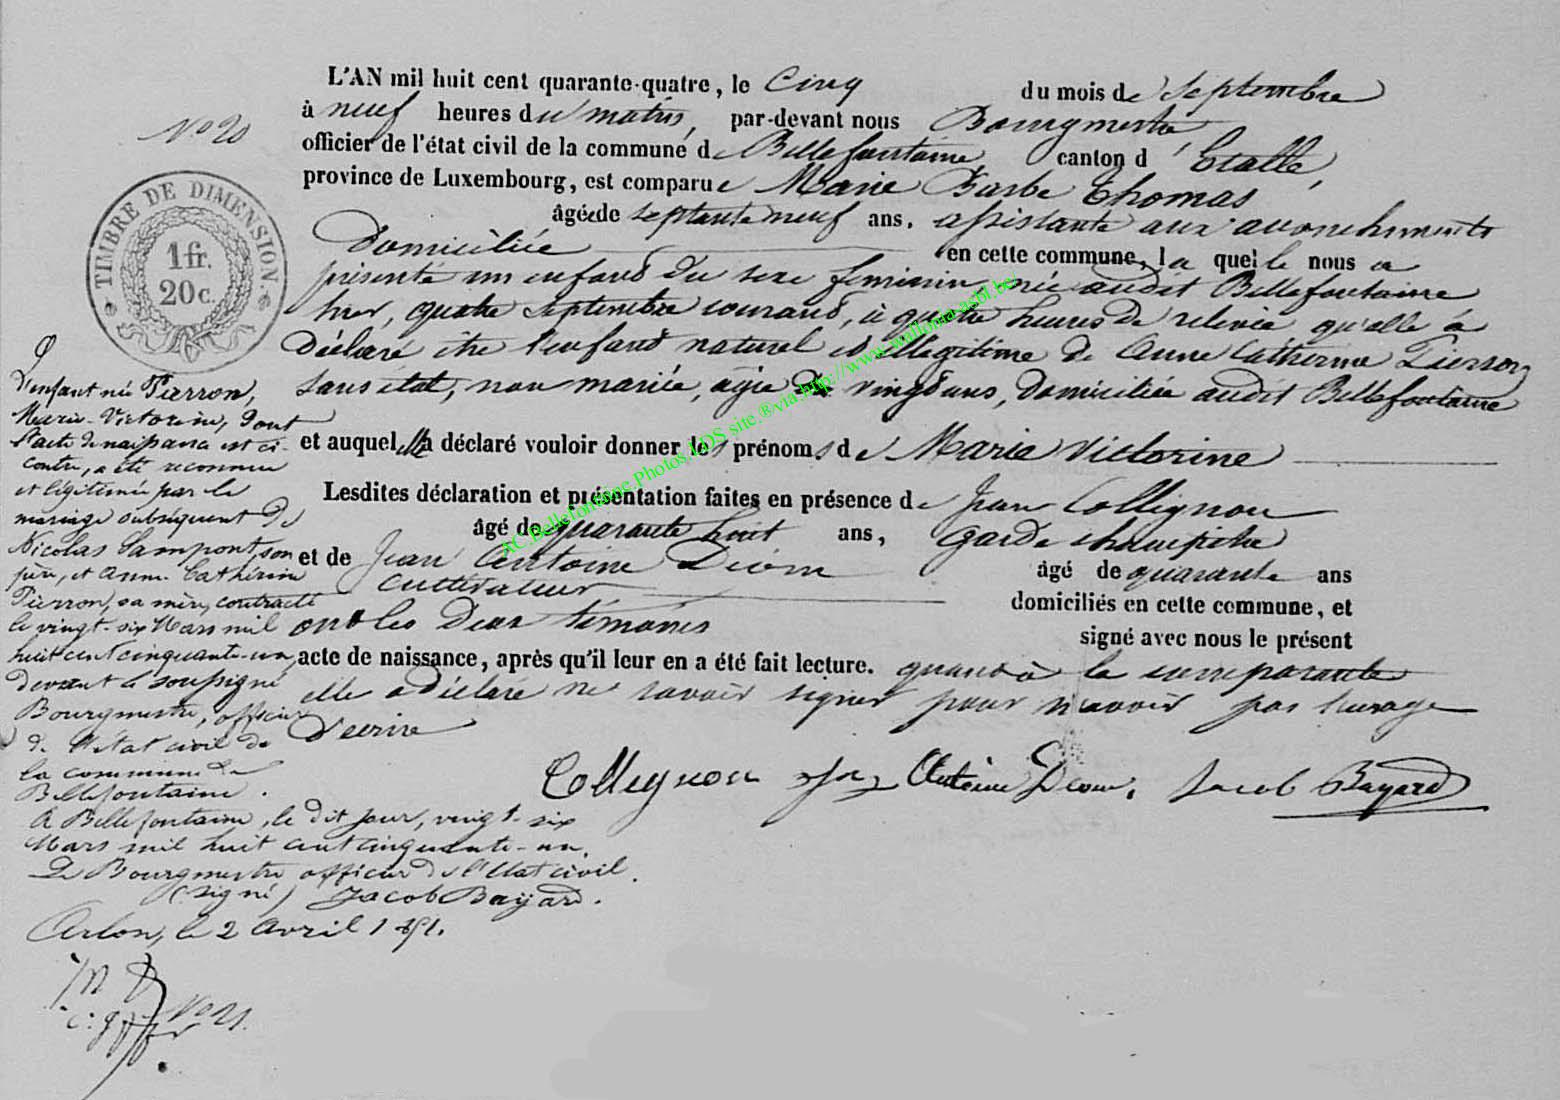 L'AN mil huit cent quarante-quatre, le Cinq du mois de Septembre
à neuf heures du matin, par-devant nous Bourgmestre
officier de l'état civil de la commune de Bellefontaine, canton d'Etalle,
province de Luxembourg, est comparue Marie Barbe Thomas
âgée de septante neuf ans, assistante aux accouchements
Domiciliée en cette commune, laquelle nous a
présenté un enfant du sexe feminin, née audit Bellefontaine
hier, quatre Septembre courant, à quatre heures de relevée qu'elle à
déclaré être l'enfant naturel et illegitime de Anne Catherine Pierron,
sans état, non mariée, agée de vingt ans, domiciliée audit Bellefontaine
et auquel elle a déclaré vouloir donner les prénoms de Marie Victorine
Lesdites déclaration et présentation faites en présence de Jean Collignon
âgé de quarante huit ans, Garde champêtre
et de Jean Antoine Diom âgé de quarante ans
cultivateur domiciliés en cette commune, et
ont les deux témoins signé avec nous le présent
acte de naissance, après qu'il leur en a été fait lecture. quant à la comparante
elle a déclaré ne savoir signer pour n'avoir pas l'usage
d'ecrire
Collignon Antoine Diom. Jacob Bayard
N° 20
TIMBRE DE DIMENSION.
1 fr.
20 c.
L'enfant née Pierron,
Marie-Victorine, dont
l'acte de naissance est ci-
contre, a été reconnue
et légitimée par le
mariage subséquent de
Nicolas Lampont, son
père, et Anne Cathérine
Pierron, sa mère, contracté
le vingt-six Mars mil
huit cent cinquante-un,
devant le soussigné
Bourgmestre, officier
de l'état civil de
la commune de
Bellefontaine.
A Bellefontaine, le dit jour, vingt-six
Mars mil huit cent cinquante-un.
Le Bourgmestre officier de l'Etat civil.
(signé) Jacob Bayard.
Arlon, le 2 Avril 1851.
N° 21.
AC.Bellefontaine.Photos.LDS site.®via.http://www.wallonia-asbl.be/